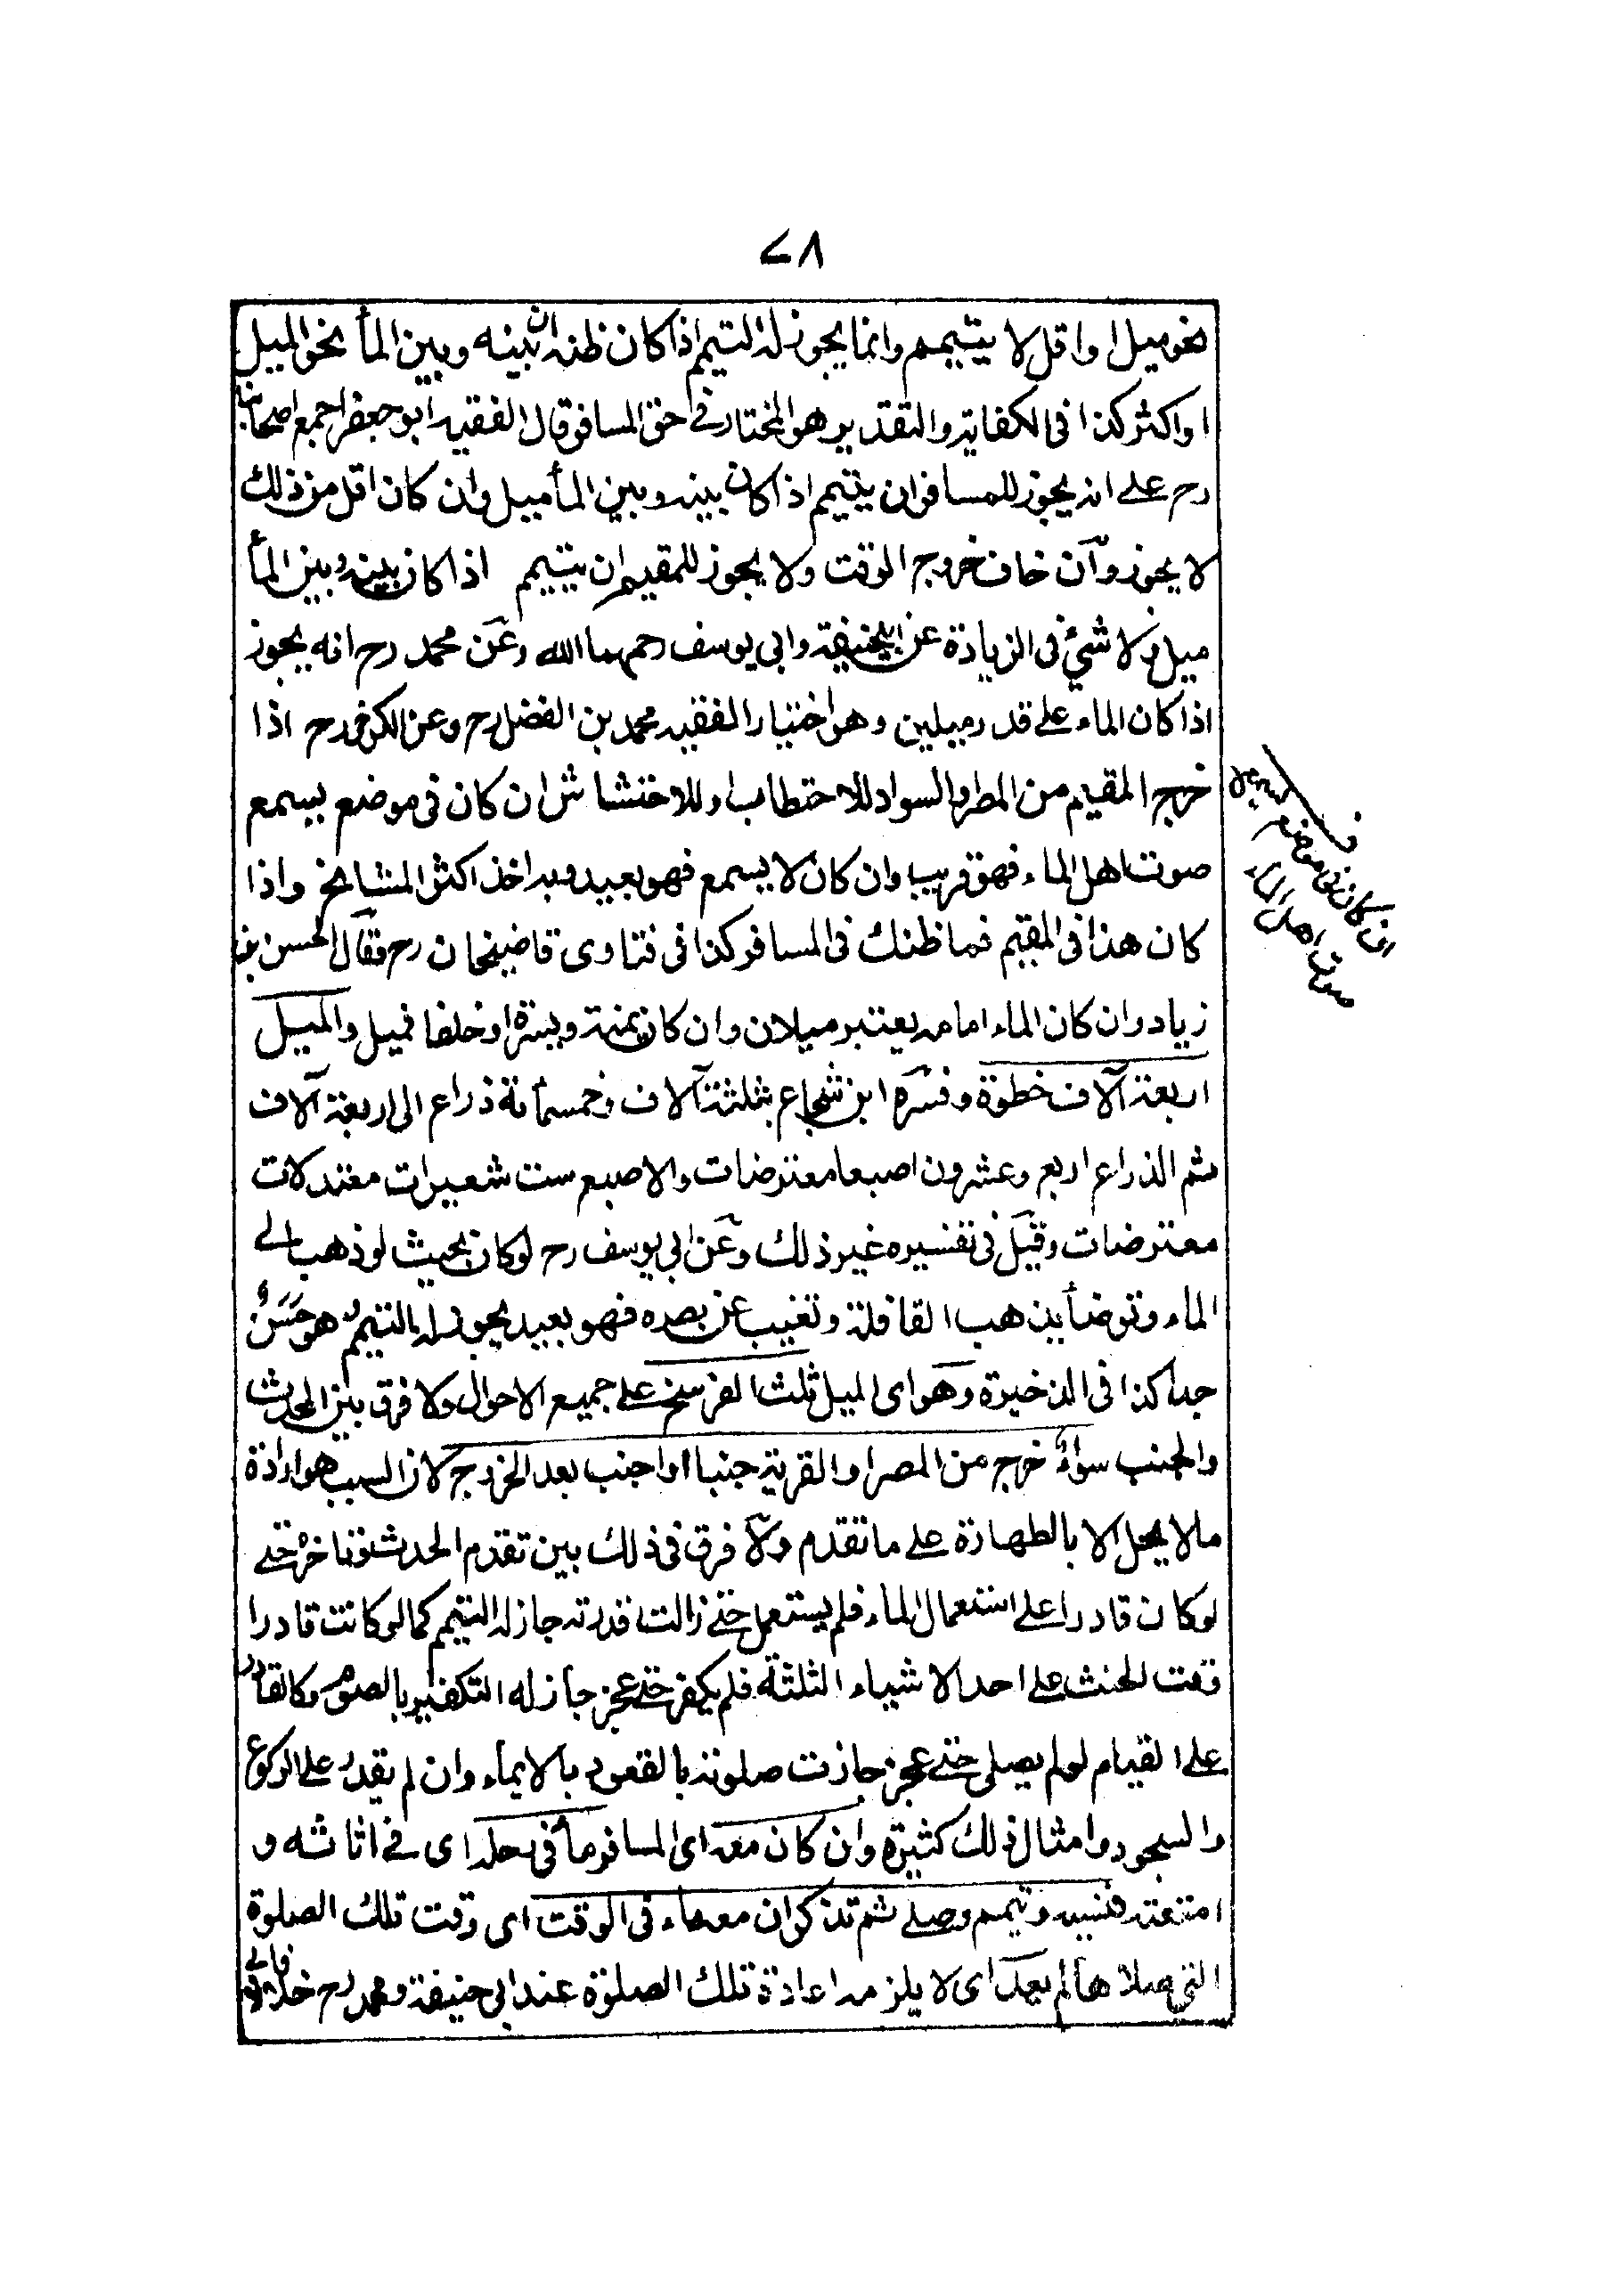 ٧٨
نحو ميل او اقل لا يتيمم وانما يجوز له التيمم اذا كان ظنه ان بينه وبين المأ نحو الميل
او اكثر كذا فى الكفاية والتقدير هو المختار فى حق المسافر قال الفقيه ابو جعفر اجمع اصحابنا
رح على انه يجوز للمسافر ان يتيمم اذا كان بينه وبين المأ ميل وان كان اقل من ذلك
لا يجوز وان خاف خروج الوقت ولا يجوز للمقيم ان يتيمم اذا كان بينه وبين المأ
ميل ولا شئ فى الزيادة عن ابيحنيفة وابي يوسف رحمهما الله وعن محمد رح انه يجوز
اذا كان الماء على قدر ميلين وهو اختيار الفقيه محمد بن الفضل رح وعن الكرخى رح اذا
خرج المقيم من المطر والسواد للاحتطاب او للاختشاش ان كان فى موضع يسمع
صوت اهل الماء فهو قريب وان كان لا يسمع فهو بعيد وبه اخذ اكثر المشايخ واذا
كان هذا فى المقيم فما ظنك فى المسافر كذا فى فتاوى قاضيخان رح فقال الحسن بن
زياد وان كان الماء امامه يعتبر ميلان وان كان يمنة ويسرة او خلفا فميل والميل
اربعة آلاف خطوة وفسره ابن شجاع بثلثة آلاف وخمسمأئة ذراع الى اربعة آلاف
ثم الذراع اربع وعشرون اصبعا معترضات والاصبع ست شعيرات معتدلات
معترضات وقيل فى تفسيره غير ذلك وعن ابي يوسف رح لو كان بحيث لو ذهب الى
الماء وتوضأ يذهب القافلة وتغيب عن بصره فهو بعيد يجوز له التيمم وهو حسن
جدا كذا فى الذخيرة وهو اى الميل ثلث الفرسخ على جميع الاحوال ولا فرق بين المحدث
والجنب سواء خرج من المصر او القرية جنبا او اجنب بعد الخروج لان السبب هو ارادة
مالا يحل الا بالطهارة على ما تقدم ولا فرق فى ذلك بين تقدم الحدث وتاخره حتى
لو كان قادرا على استعمال الماء فلم يستعمل حتى زالت قدرته جاز له التيمم كما لو كانت قادرا
وقت الحنث على احد الاشياء الثلثة فلم يكفر حتى عجز جاز له التكفير بالصوم وكالقادر
على القيام لو لم يصلى حتى عجز جازت صلوته بالقعود بالايماء وان لم يقدر على الركوع
والسجود وامثال ذلك كثيرة وان كان معه اى المسافر مأ فى رحله اى فى اثاثه و
امتعته فنسيه وتيمم وصلى ثم تذكر ان معه ماء فى الوقت اى وقت تلك الصلوة
التى صلاها لم يعد اى لا يلزمه اعادة تلك الصلوة عند ابى حنيفة ومحمد رح خلافا لابي
ان كان فى موضع
صوت اهل الماء